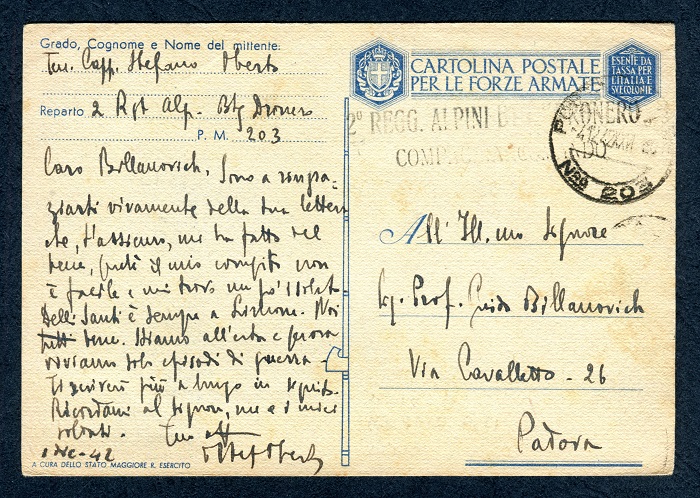 Grado, Cognome e Nome del mittente:
Ten. Capp. Stefano Oberto
Reparto 2 Rgt Alp. Btg Dronero
P. M. 203
Caro Billanovich, sono a ringra-
ziarti vivamente della tua lettera
che, t'assicuro, mi ha fatto del
bene, perché il mio compito non
è facile e mi trovo un po' isolato
Delli Santi è sempre a Limone. Noi
tutti bene. Siamo all'erta e
viviamo solo episodi di guerra.
Ti scriverò più a lungo in seguito.
Ricordami al Signore, me e i miei
soldati. Tuo aff
D Stef Oberto
1 Dic - 42
A CURA DELLO STATO MAGGIORE R. ESERCITO
CARTOLINA POSTALE
PER LE FORZE ARMATE
ESENTE DA
TASSA PER
L'ITALIA E
SUE COLONIE
2° REGG. ALPINI
DRONERO
No 203
All' Ill.mo Signore
Sig. Prof. Guido Billanovich
Via Cavalletto - 26
Padova